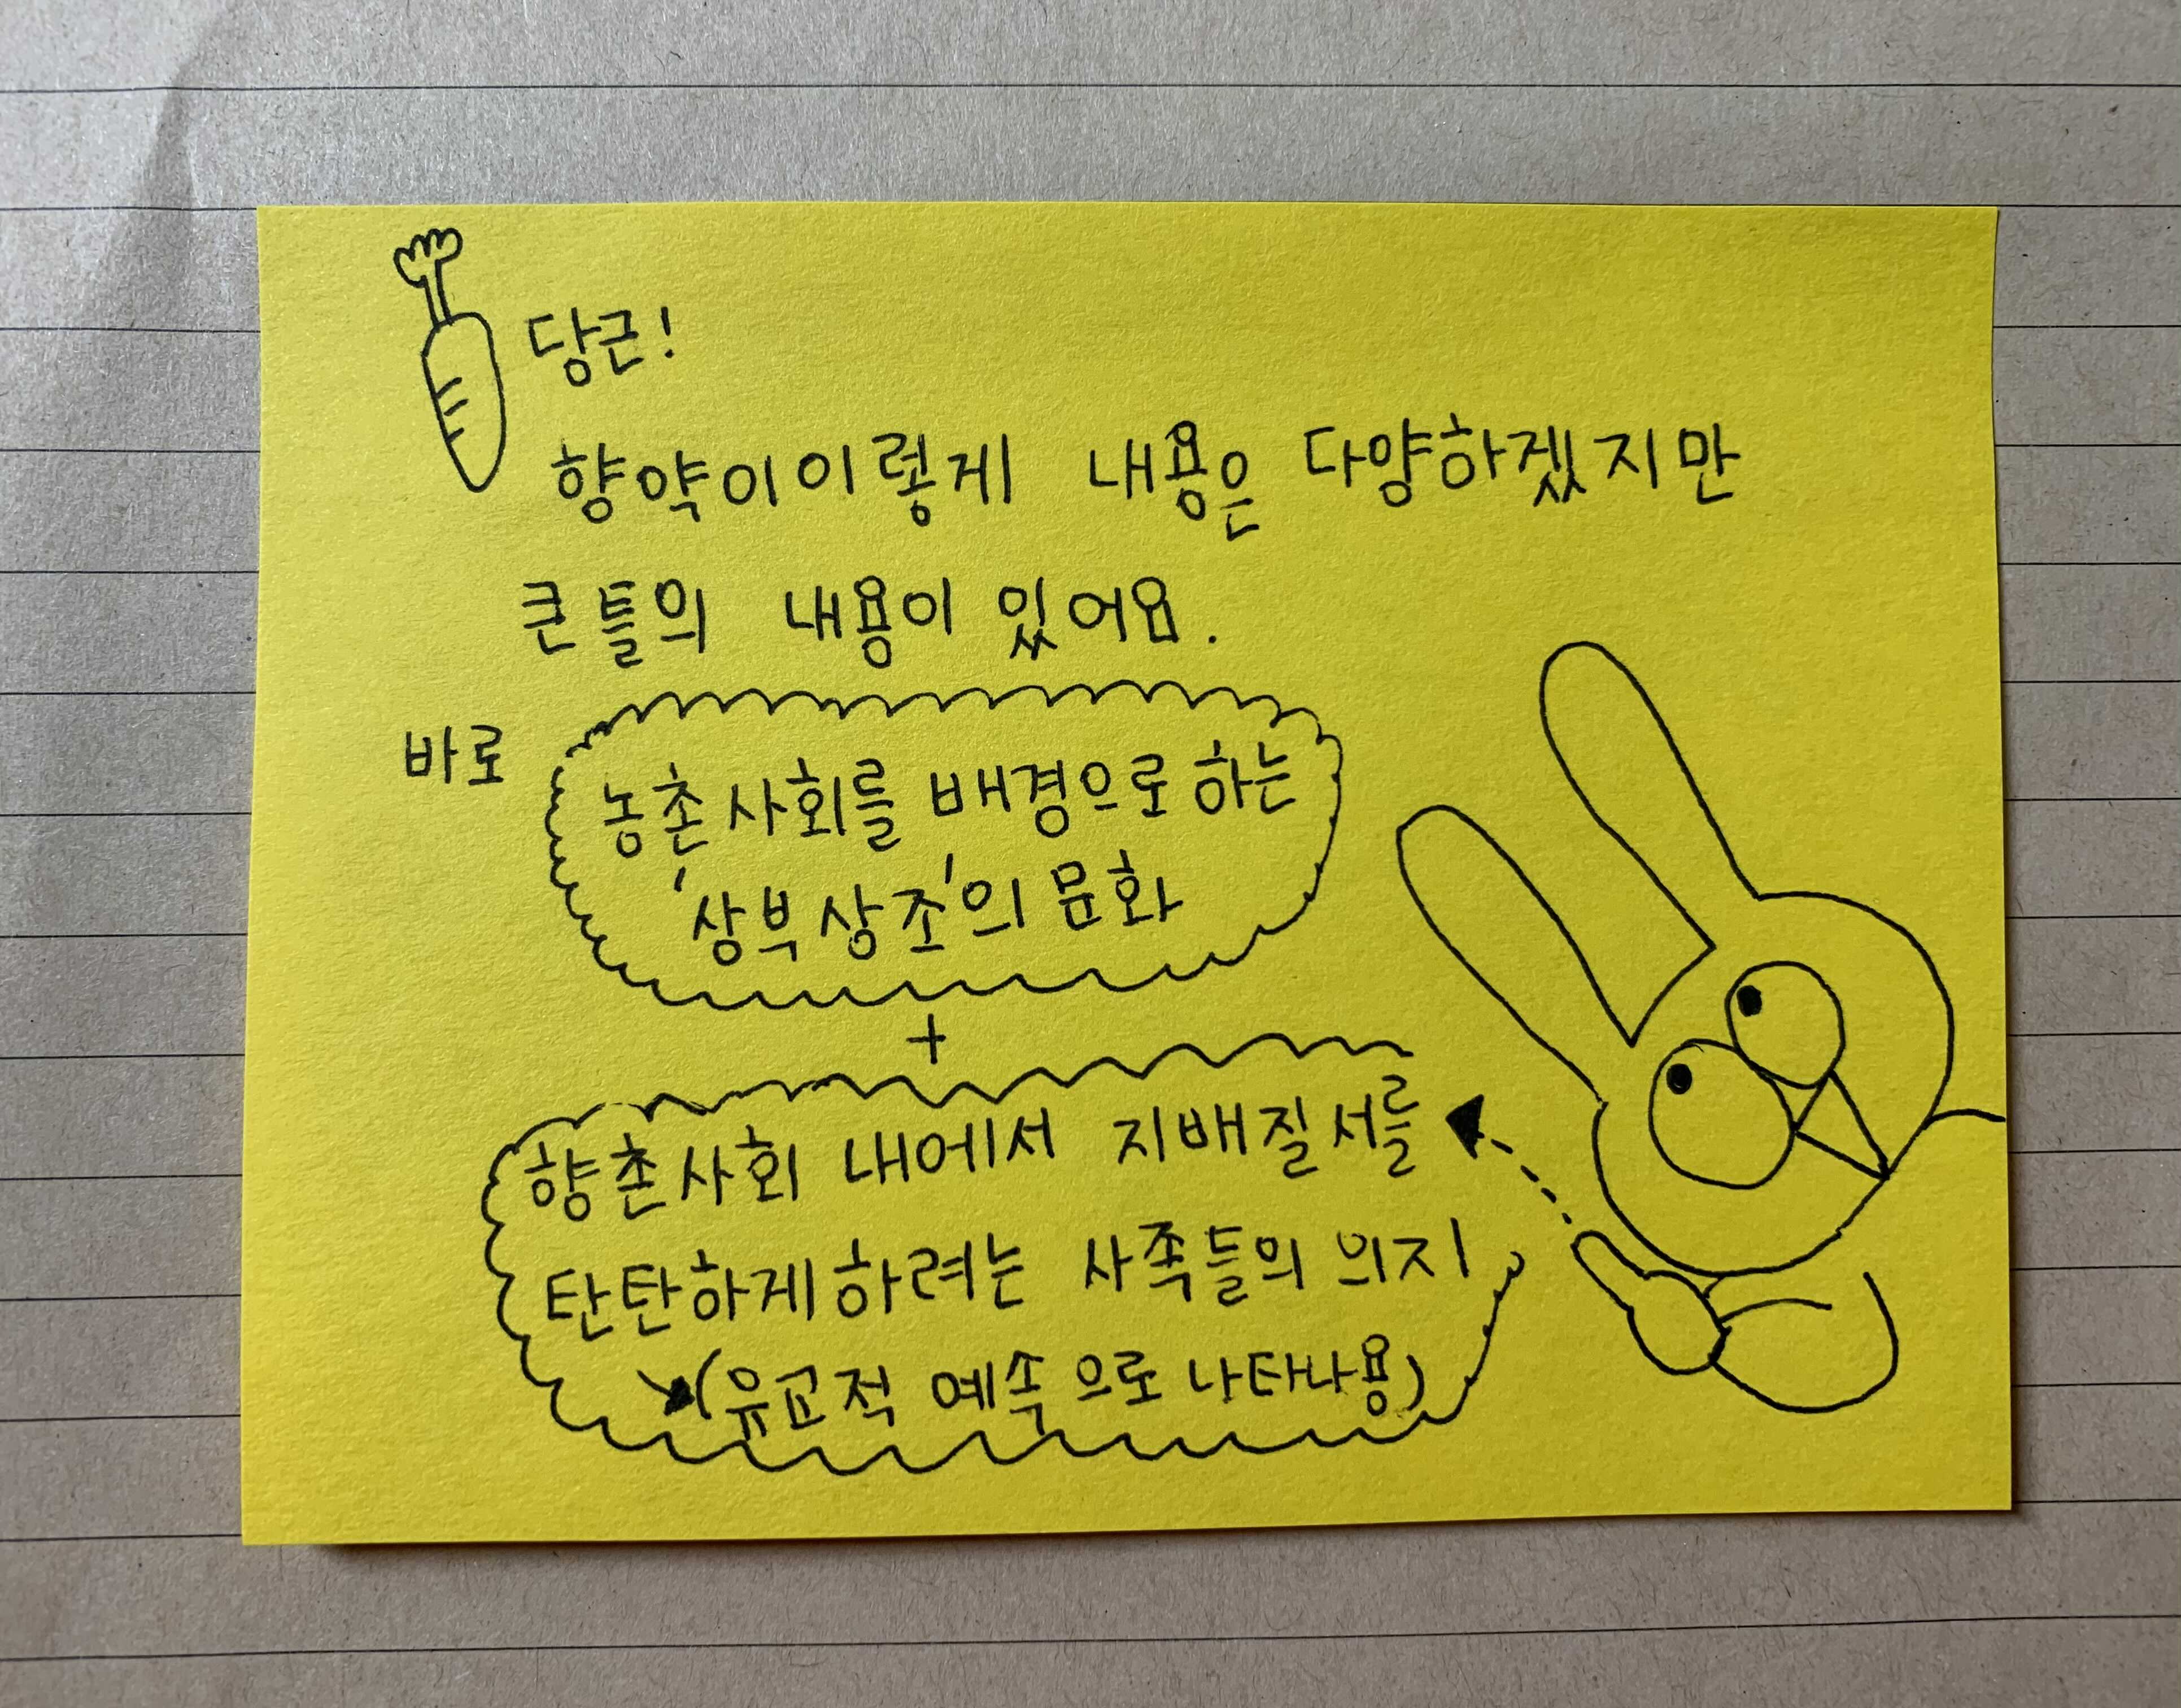 당근!
향약이 이렇게 내용은 다양하겠지만
큰 틀의 내용이 있어요.
바로
농촌사회를 배경으로 하는
'상부상조'의 문화
+
향촌사회 내에서 지배질서를
탄탄하게하려는 사족들의 의지
(유교적 예속으로 나타나용)